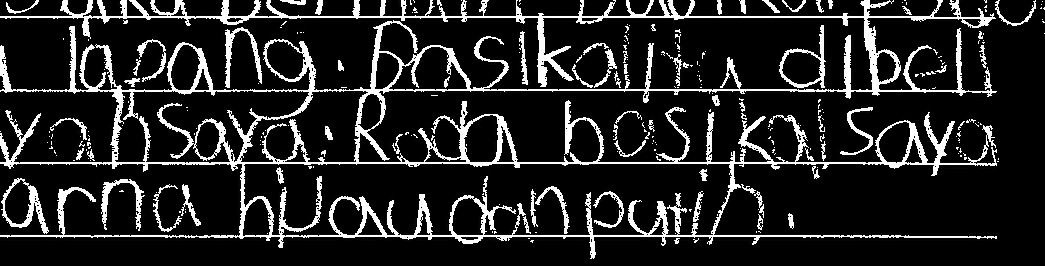 suka bermain basikal pada
lapang. Basikal itu dibeli
yahsaya. Roda basikal saya
arna hijau dan putih.